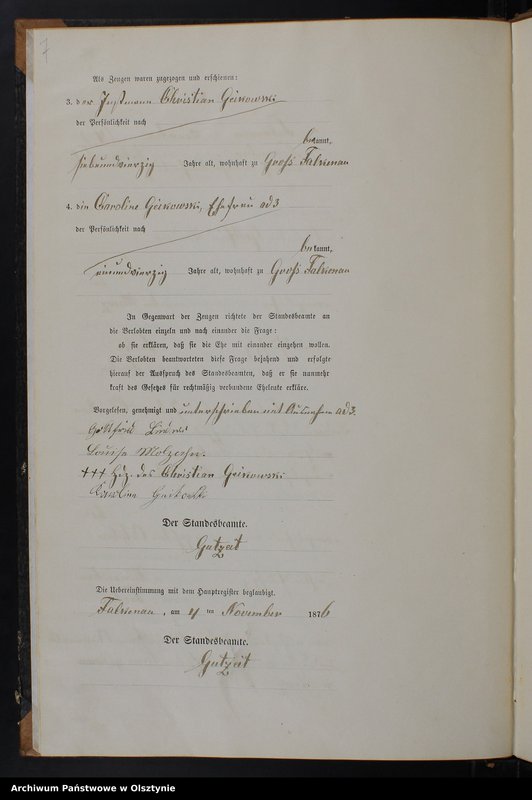 7
Als Zeugen waren zugezogen und erschienen:
3. der Instmann Christian Geikowski
der Persönlichkeit nach
bekannt,
siebenundvierzig Jahre alt, wohnhaft zu Groß Falkenau
4. die Caroline Geikowski, Ehefrau ad 3
der Persönlichkeit nach
bekannt,
neunundvierzig Jahre alt, wohnhaft zu Groß Falkenau
In Gegenwart der Zeugen richtete der Standesbeamte an
die Verlobten einzeln und nach einander die Frage:
ob sie erklären, daß sie die Ehe mit einander eingehen wollen.
Die Verlobten beantworteten diese Frage bejahend und erfolgte
hierauf der Ausspruch des Standesbeamten, daß er sie nunmehr
kraft des Gesetzes für rechtmäßig verbundene Eheleute erkläre.
Vorgelesen, genehmigt und unterschrieben mit Ausnahme ad 3.
Gottfried
Louise
+++ Hdz. des Christian Geikowski
Karoline
Der Standesbeamte.
Gutzeit
Die Uebereinstimmung mit dem Hauptregister beglaubigt.
Falkenau, am 4 ten November 1876
Der Standesbeamte.
Gutzeit
Archiwum Państwowe w Olsztynie